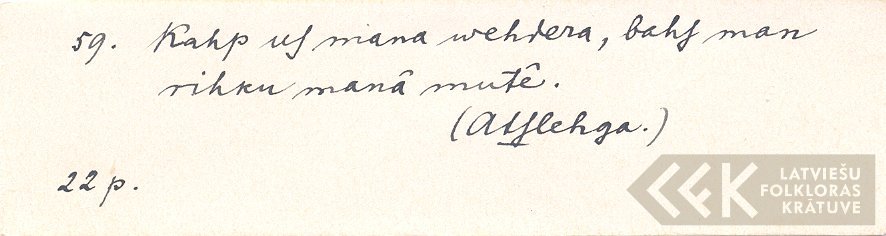 59. Kahp uſ mana wehdera, bahſ man
rihku manâ mutê.
(Atſlehga.)
22 p.
LATVIEŠU
FOLKLORAS
KRĀTUVE